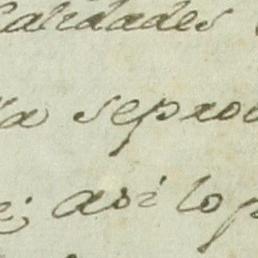 calidades
a seprov
e; asi lo p